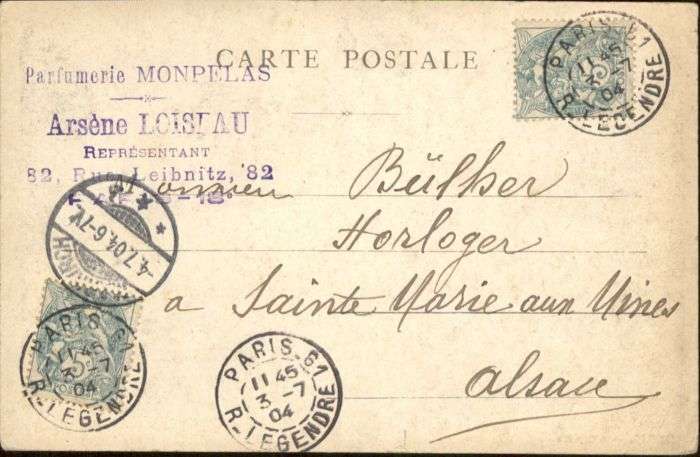 CARTE POSTALE
Parfumerie MONPELAS
Arsène LOISEAU
REPRÉSENTANT
82, Rue Leibnitz, 82
PARIS-18e
Monsieur Bülher
Horloger
a Sainte Marie aux Mines
Alsace
PARIS 61
11 45
3 -7
04
R. LEGENDRE
4.7.04.6-7V.
PARIS 61
11 45
3 -7
04
R. LEGENDRE
PARIS 61
11 45
3 -7
04
R. LEGENDRE